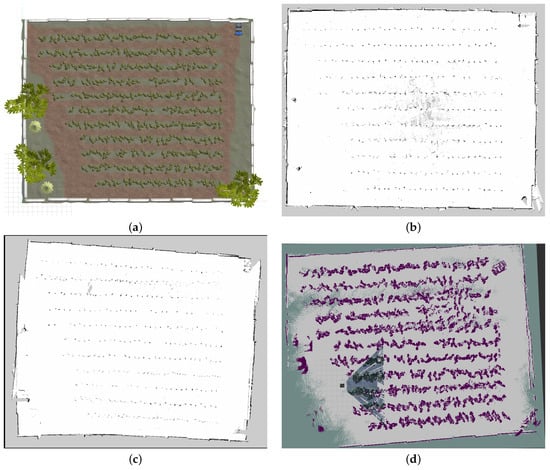 (a)
(b)
(c)
(d)